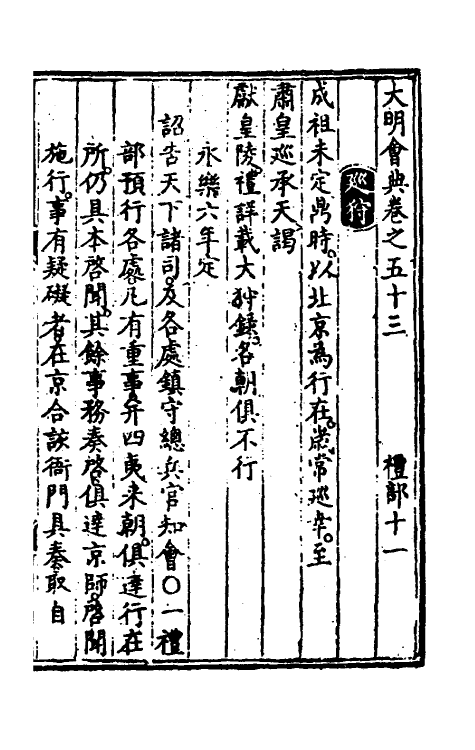 大明會典卷之五十三 禮部十一
巡狩
成祖未定鼎時以北京為行在嵗常巡幸至
肅皇巡承天謁
獻皇陵禮詳載大狩錄各朝俱不行
永樂六年定
詔告天下諸司及各處鎮守總兵官知會○一禮
部預行各處凡有重事并四夷来朝俱達行在
所仍具本啓聞其餘事務奏啓俱達京師啓聞
施行事有疑礙者在京合該衙門具奏取自